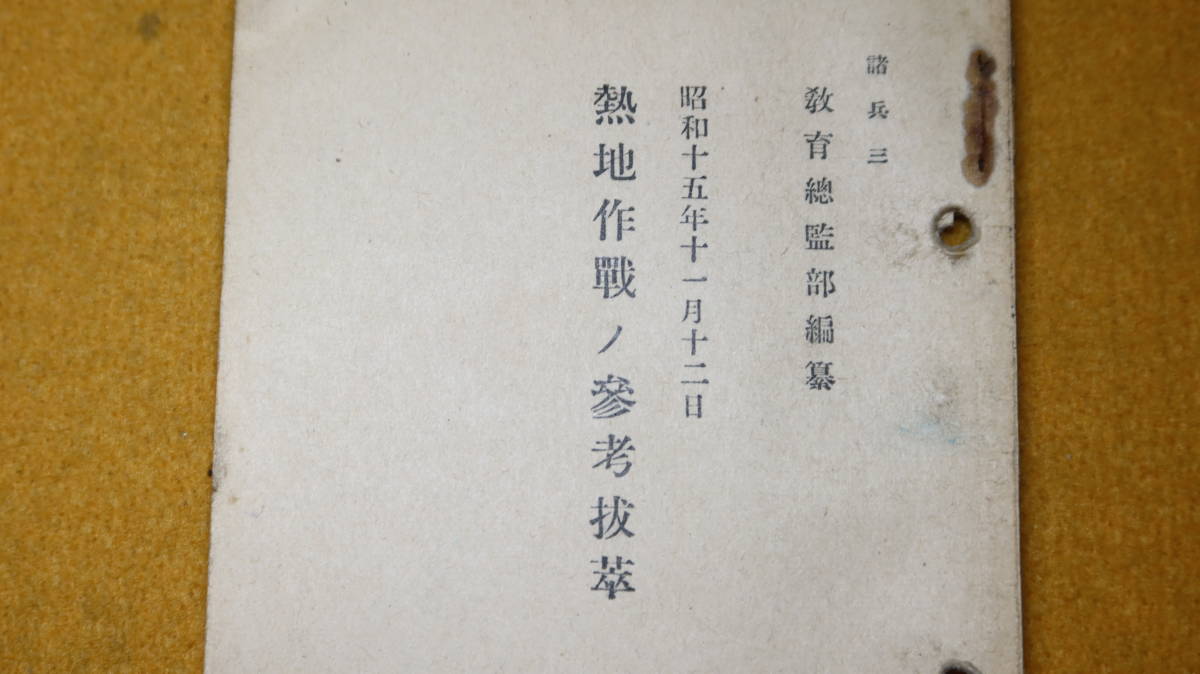 諸兵三
敎育總監部編纂
昭和十五年十一月十二日
熱地作戰ノ參考拔萃